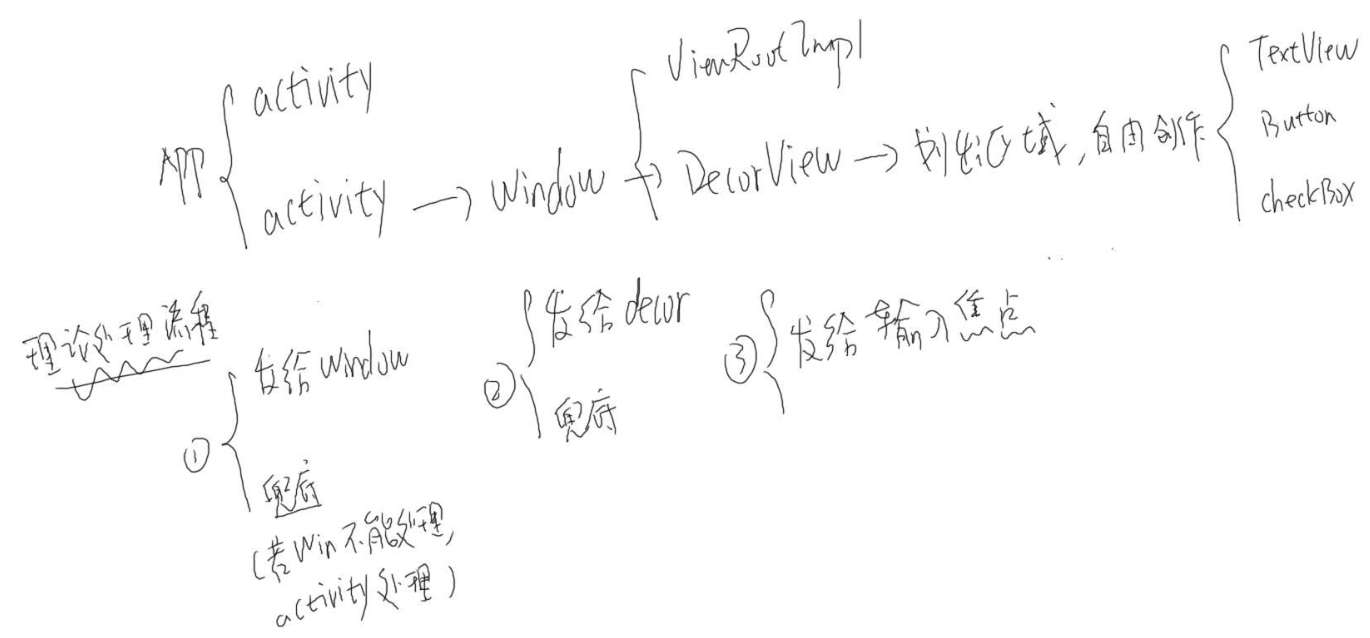 APP
activity
activity → Window →
ViewRootImpl
DecorView → 划出区域,自由创作
TextView
Button
checkBox
理论处理流程
①
发给window
兜底
(若Win不能处理,
activity处理)
②
发给decor
兜底
③
发给输入焦点